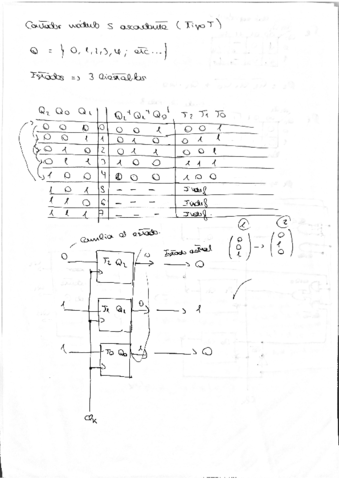 Contador módulo 5 ascendente (Tipo T)
Q = { 0, 1, 2, 3, 4, etc...}
Estados => 3 biestables
Q2 Q0 Q1 Q2+ Q1+ Q0+ T2 T1 T0
0 0 0 0 0 0 1 0 0 1
0 0 1 1 0 1 0 0 1 1
0 1 0 2 0 1 1 0 0 1
0 1 1 3 1 0 0 1 1 1
1 0 0 4 0 0 0 1 0 0
1 0 1 5 - - - Indef
1 1 0 6 - - - Indef
1 1 1 7 - - - Indef
Cambia el estado
Estado actual
1 2
0 T2 Q2 0 0
1 T1 Q1 0 1
1 T0 Q0 1 0
0 0 1 -> 0 1 0